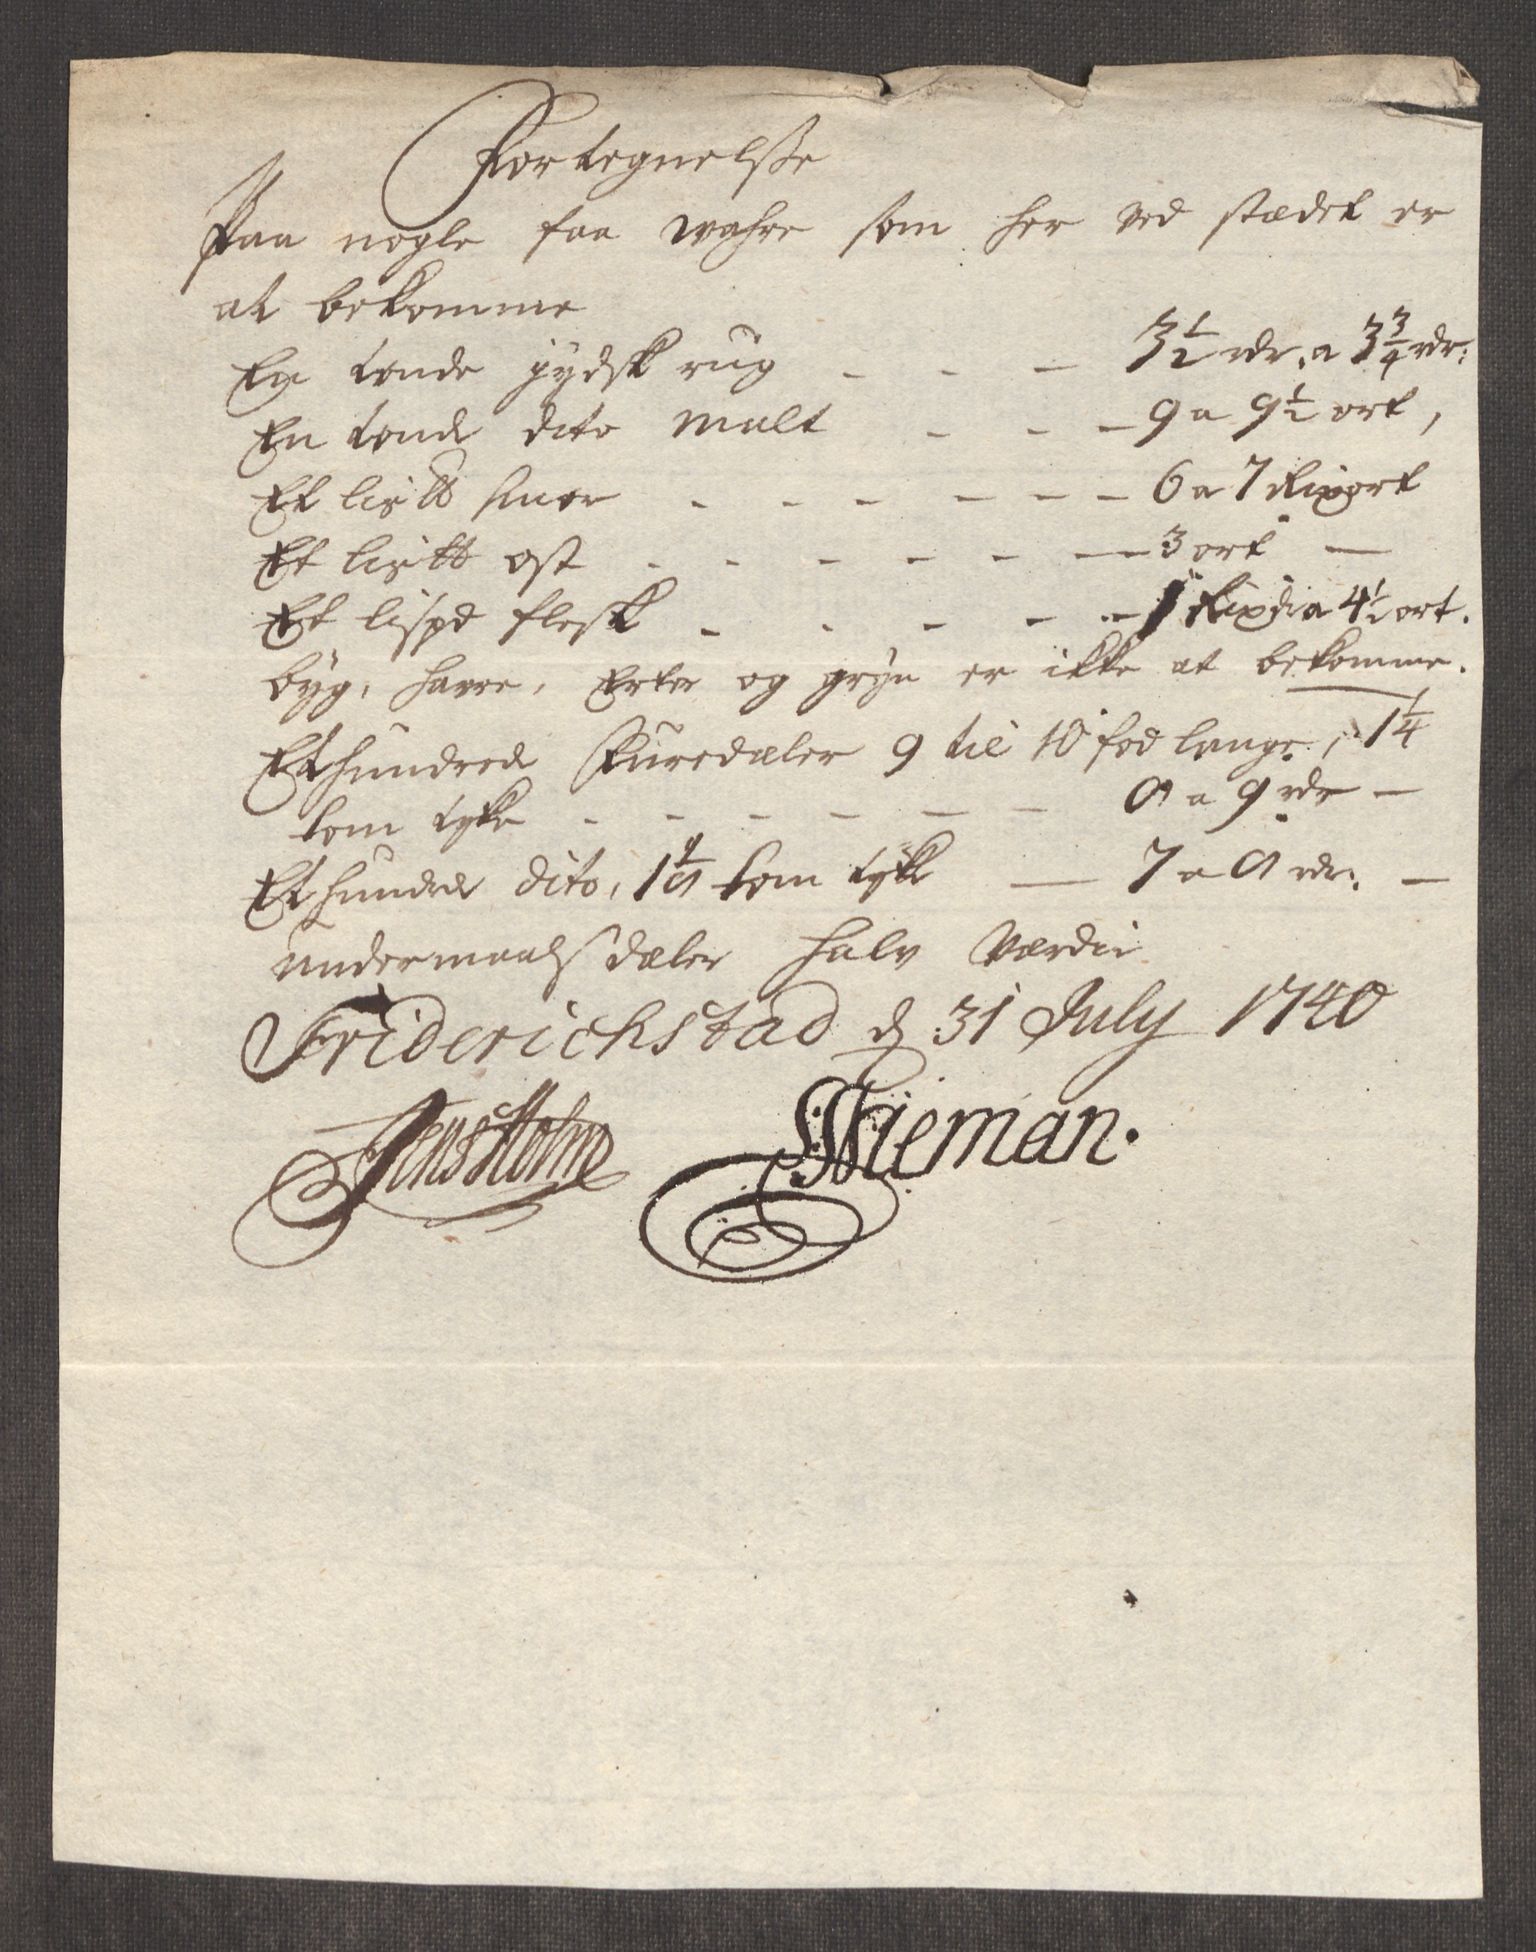 Fortegnelsse
Paa nogle faa wahre som her ved stædet er
at bekomme
En tønde jydsk rug - - - 3½ rdr. a 3¾ rdr:
En tønde dito Malt - - - 9 a 9½ ort,
Et lis℔ smør - - - - - - 6 a 7 Rixort
Et lis℔ ost - - - - - - 3 ort -
Et lispd flesk - - - - - 1 Rixd: a 4½ ort.
byg, havre, Erter og gryn er ikke at bekomme.
Et hundred skuredæler 9 til 10 fod lange, 1¼
tom tyke - - - - - - 8 a 9 rdr -
Et hundred dito, 1⅛ tom tykke - 7 a 8 rdr: -
undermaals dæler halv værdie
Friderichstad d 31 July 1740
Jens Holm
Nieman.